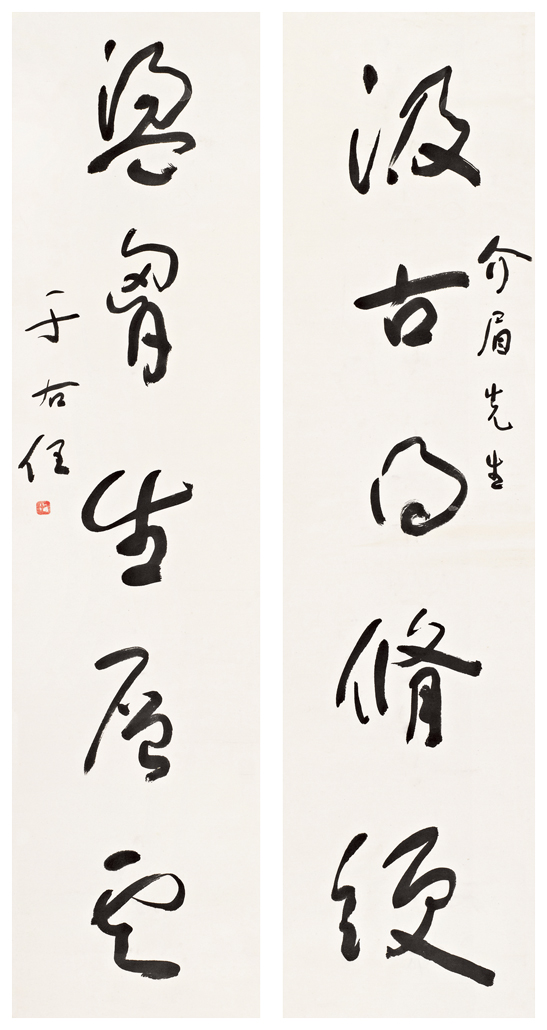 汲古得脩綆
介眉先生
盪胷生層雲
于右任